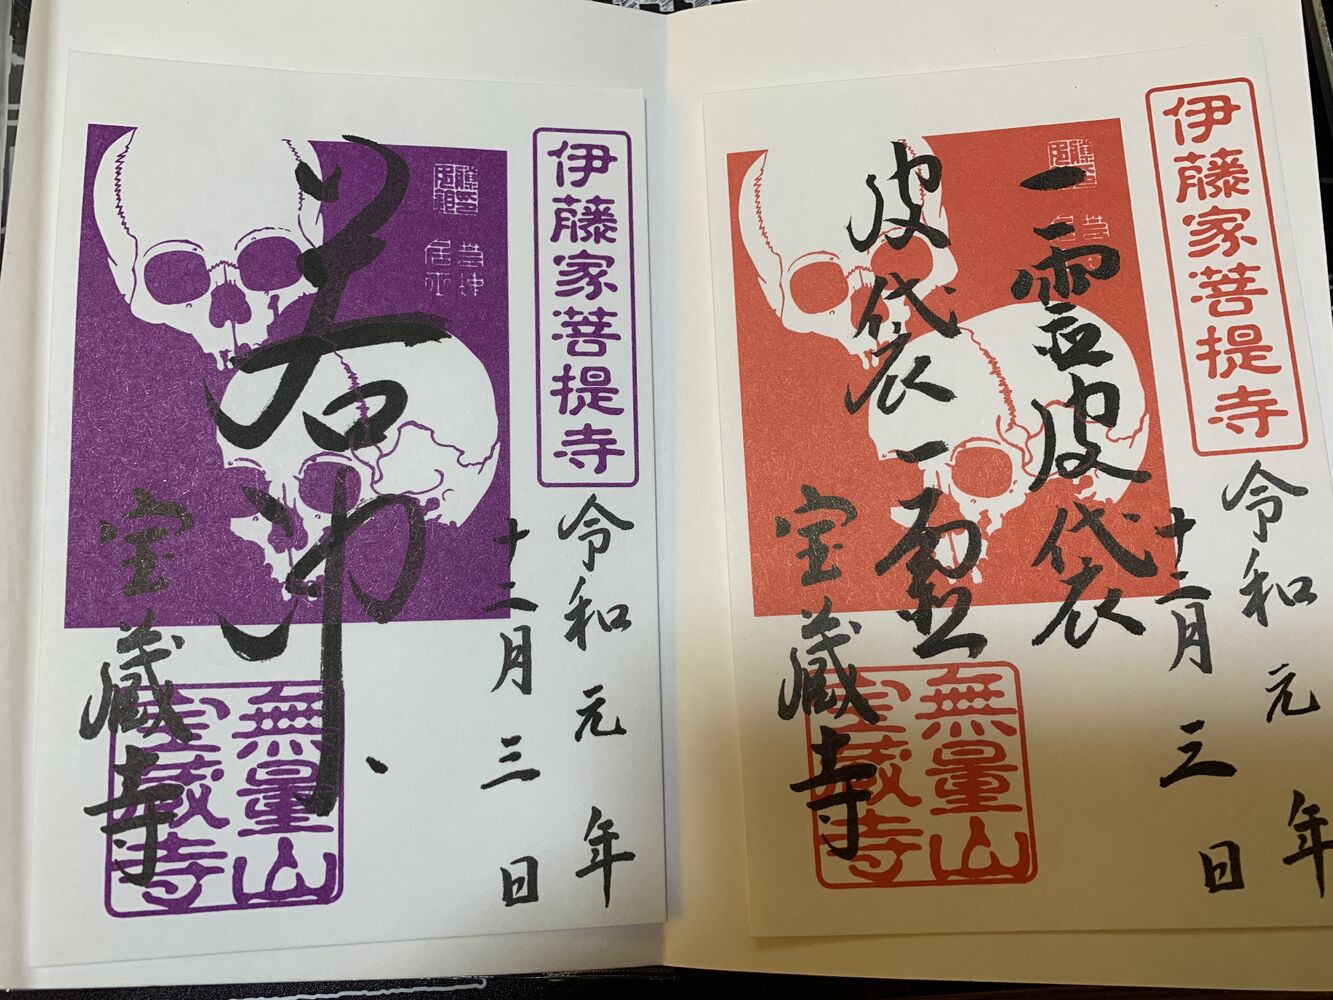 伊藤家菩提寺
令和元年
十二月三日
一霊皮袋
皮袋一霊
宝蔵寺
無量山
宝蔵寺
伊藤家菩提寺
令和元年
十二月三日
若冲
宝蔵寺
無量山
宝蔵寺